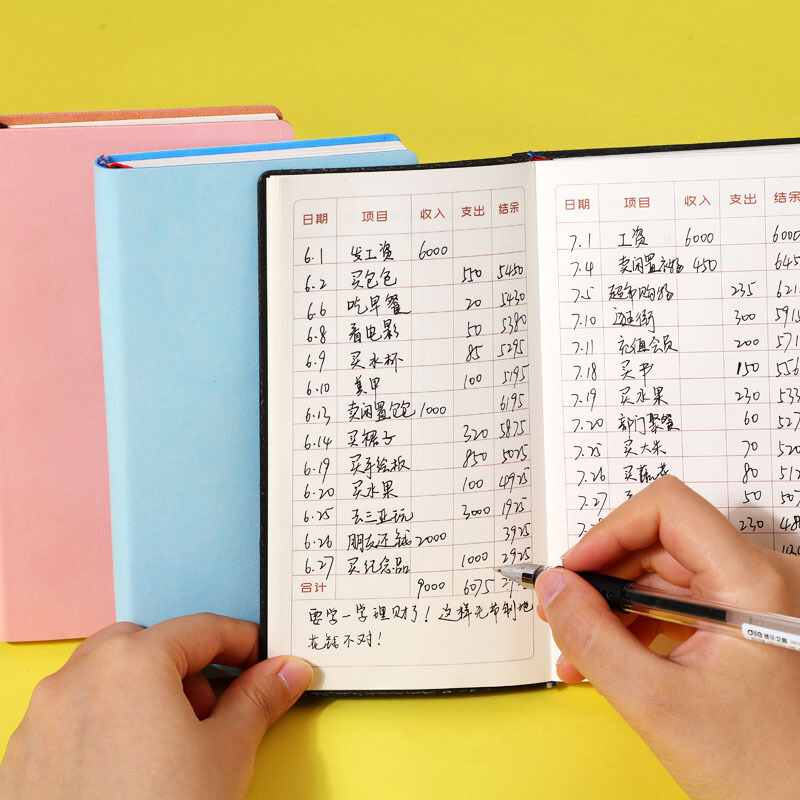 日期 项目 收入 支出 结余
6.1 发工资 6000
6.2 买包包 550 5450
6.6 吃早餐 20 5430
6.8 看电影 50 5380
6.9 买水杯 85 5295
6.10 美甲 100 5195
6.13 卖闲置包包 1000 6195
6.14 买裙子 320 5875
6.19 买手绘板 850 5025
6.20 买水果 100 4925
6.25 去三亚玩 3000 1925
6.26 朋友还钱 2000 3925
6.27 买纪念品 1000 2925
合计 9000 6075
要学一学理财了！这样无节制地
花钱不对！
日期 项目 收入 支出 结余
7.1 工资 6000 6000
7.4 卖闲置衣物 450 645
7.5 超市购物 235 621
7.10 逛街 300 5915
7.11 充值会员 200 571
7.18 买书 150 556
7.19 买水果 230 533
7.20 部门聚餐 60 527
7.25 买大米 70 520
7.26 买 80 512
7.27 50 507
230 48